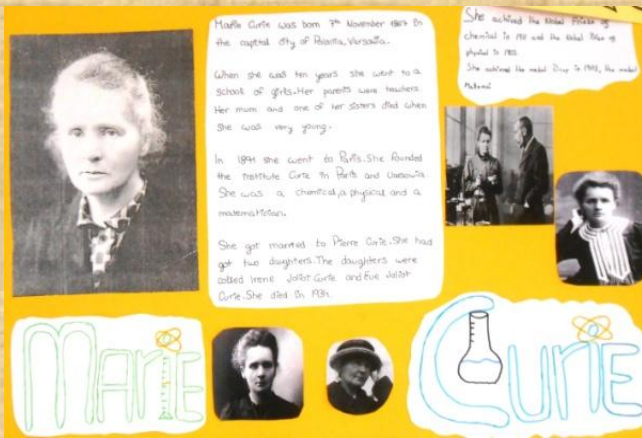 Marie Curie was born 7th November 1867 in
the capital city of Polonia, Varsovia.
When she was ten years she went to a
school of girls. Her parents were teachers.
Her mum and one of her sisters died when
she was very young.
In 1891 she went to Paris. She founded
the institute Curie in Paris and Varsovia.
She was a chemical, a physical and a
matematician.
She got married to Pierre Curie. She had
got two daughters. The daughters were
called Irene Joliot Curie and Eve Joliot
Curie. She died in 1934.
She achived the Nobel of
chemical in 1911 and the Nobel of
physical in 1903.
She achived the medal Davy in 1903, the medal
Marie
Curie